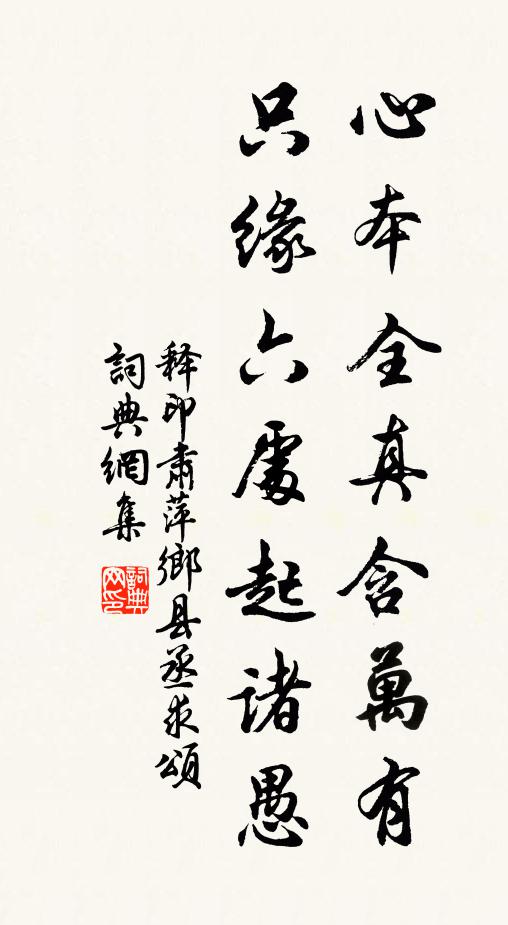 心本全真含萬有
只缘六處起诸愚
释印肃萍鄉县丞求頌
詞典網集
詞典网印